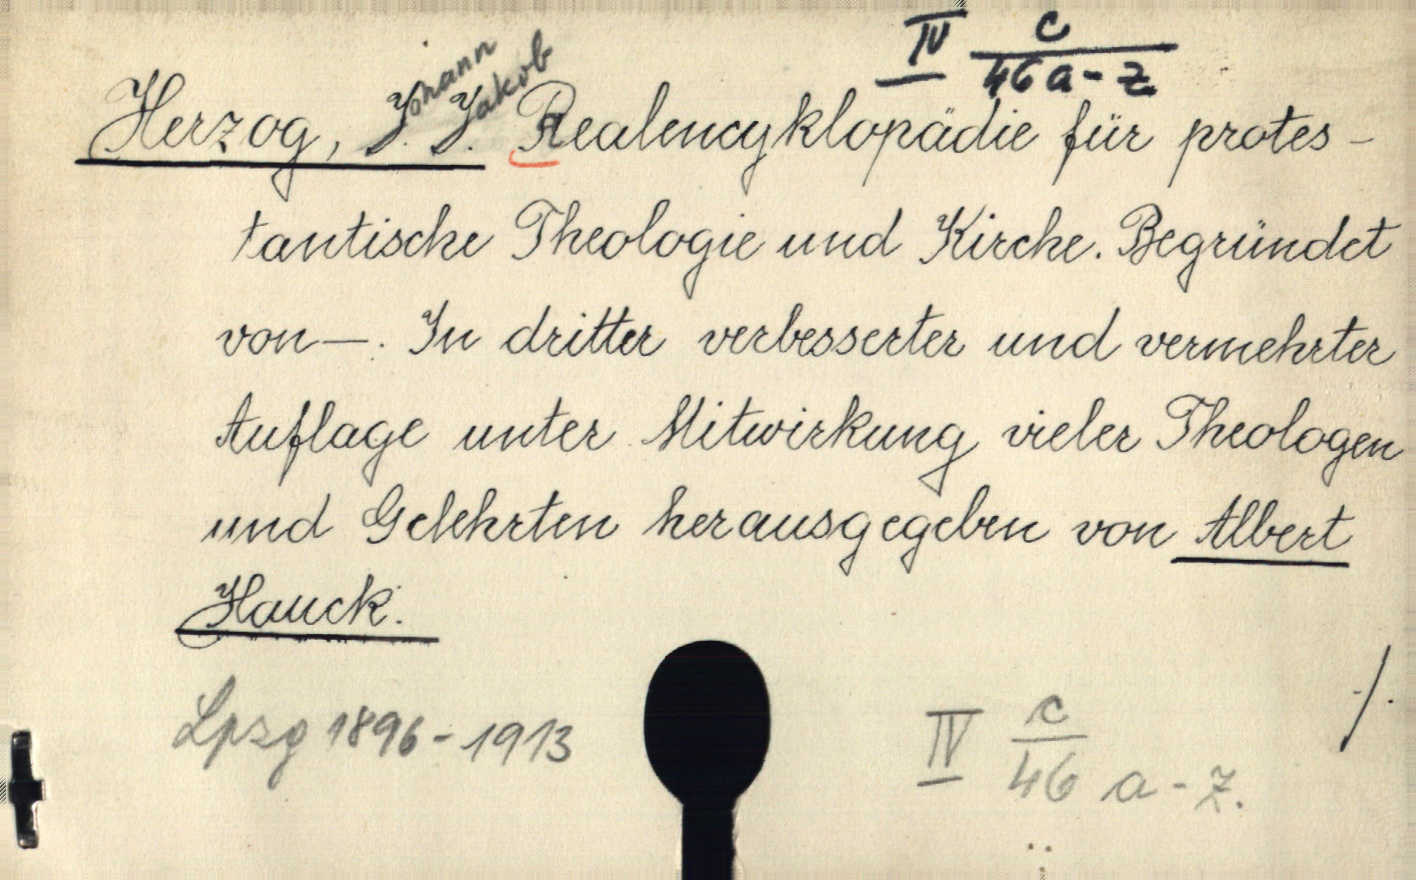 IV c
46 a - z
Johann
Jakob
Herzog, J. J. Realencyklopädie für protes-
tantische Theologie und Kirche. Begründet
von —. In dritter verbesserter und vermehrter
Auflage unter Mitwirkung vieler Theologen
und Gelehrten herausgegeben von Albert
Hauck.
./.
Lpzg 1896-1913
IV c
46 a - z.